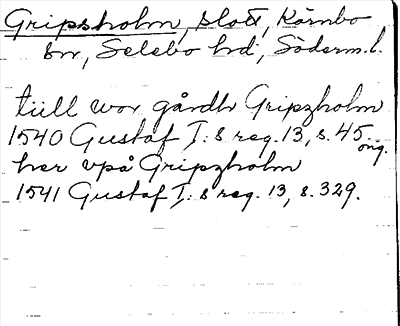 Gripsholm, slott, Kärnbo
sn, Selebo hd, Söderm. l.
tiill wor gårdh Gripzholm
1540 Gustaf I:s reg. 13, s. 45.
orig.
her vpå Gripzholm
1541 Gustaf I:s reg. 13, s. 329.